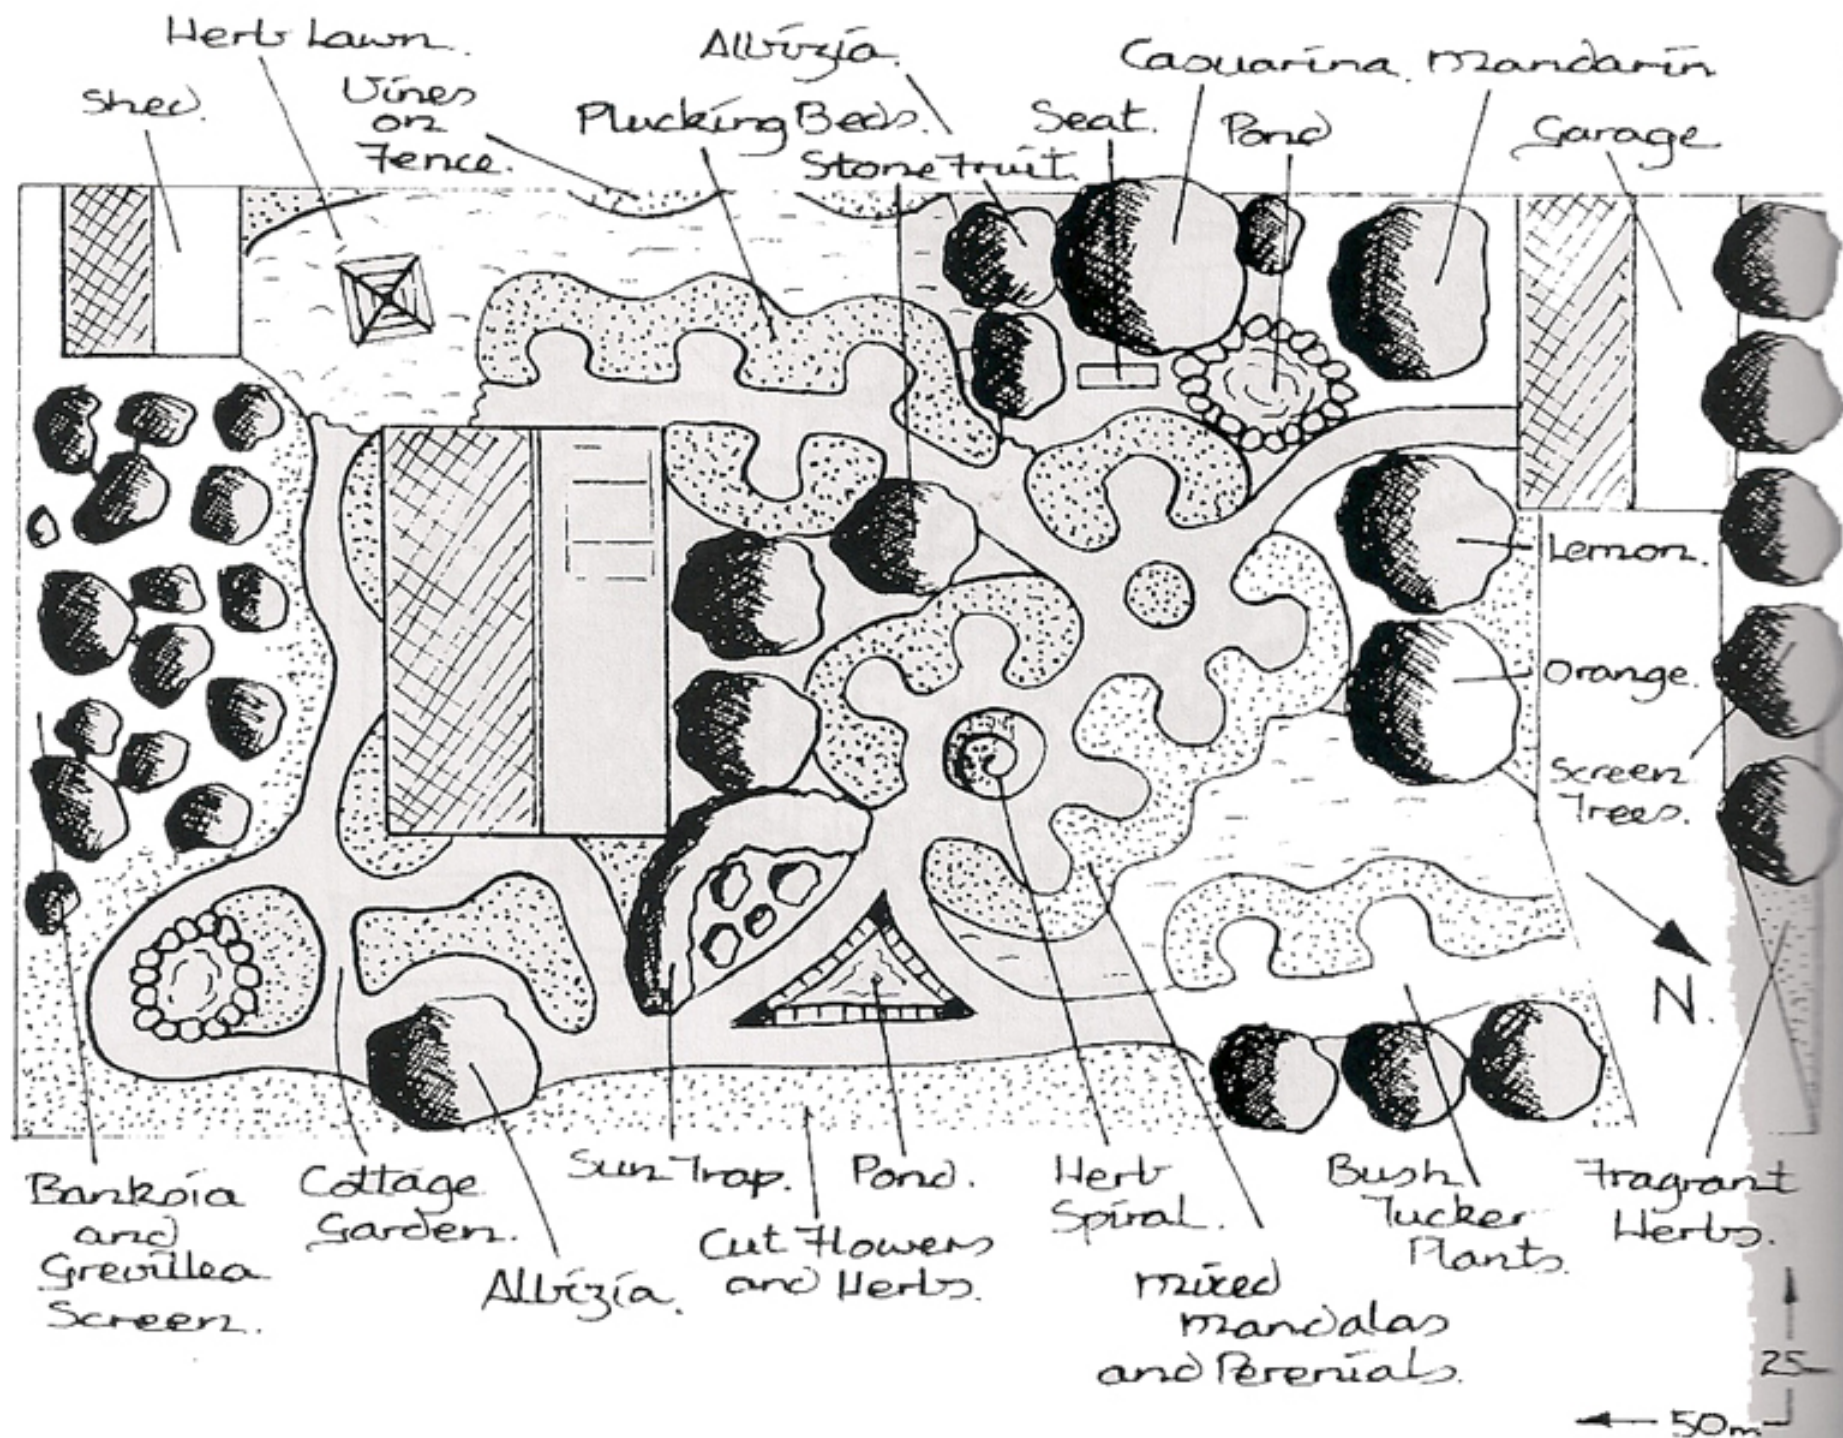 Herb Lawn.
Shed.
Vines
on
Fence.
Albizia.
Plucking Beds.
Stone Fruit.
Seat.
Casuarina.
Pond
Mandarin
Garage
Lemon.
Orange.
Screen
Trees.
N.
Banksia
and
Grevillea
Screen.
Cottage
Garden.
Albizia.
Sun Trap.
Cut Flowers
and Herbs.
Pond.
Herb
Spiral.
Mixed
Mandalas
and Perenials.
Bush
Tucker
Plants.
Fragrant
Herbs.
25m
50m